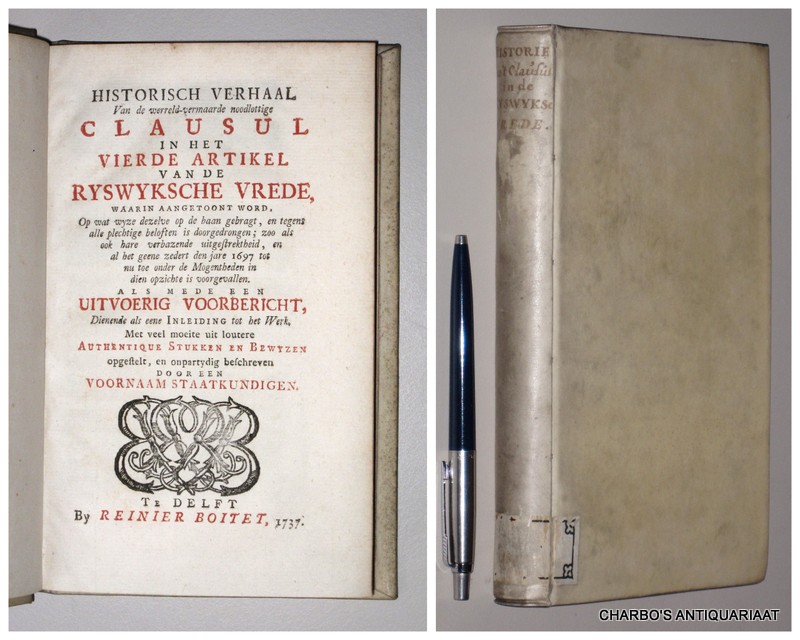 HISTORISCH VERHAAL
Van de werreld-vermaarde noodlottige
CLAUSUL
IN HET
VIERDE ARTIKEL
VAN DE
RYSWYKSCHE VREDE,
WAARIN AANGETOONT WORD,
Op wat wyze dezelve op de baan gebragt, en tegens
alle plechtige beloften is doorgedrongen; zoo als
ook hare verbazende uitgestrektheid, en
al het geene zedert den jare 1697 tot
nu toe onder de Mogentheden in
dien opzichte is voorgevallen.
ALS MEDE EEN
UITVOERIG VOORBERICHT,
Dienende als eene INLEIDING tot het Werk.
Met veel moeite uit loutere
AUTHENTIQUE STUKKEN EN BEWYZEN
opgestelt, en onpartydig beschreven
DOOR EEN
VOORNAAM STAATKUNDIGEN.
TE DELFT
By REINIER BOITET, 1737.
HISTORIE
Clausul
in de
RYSWYKSe
VREDE.
CHARBO'S ANTIQUARIAAT